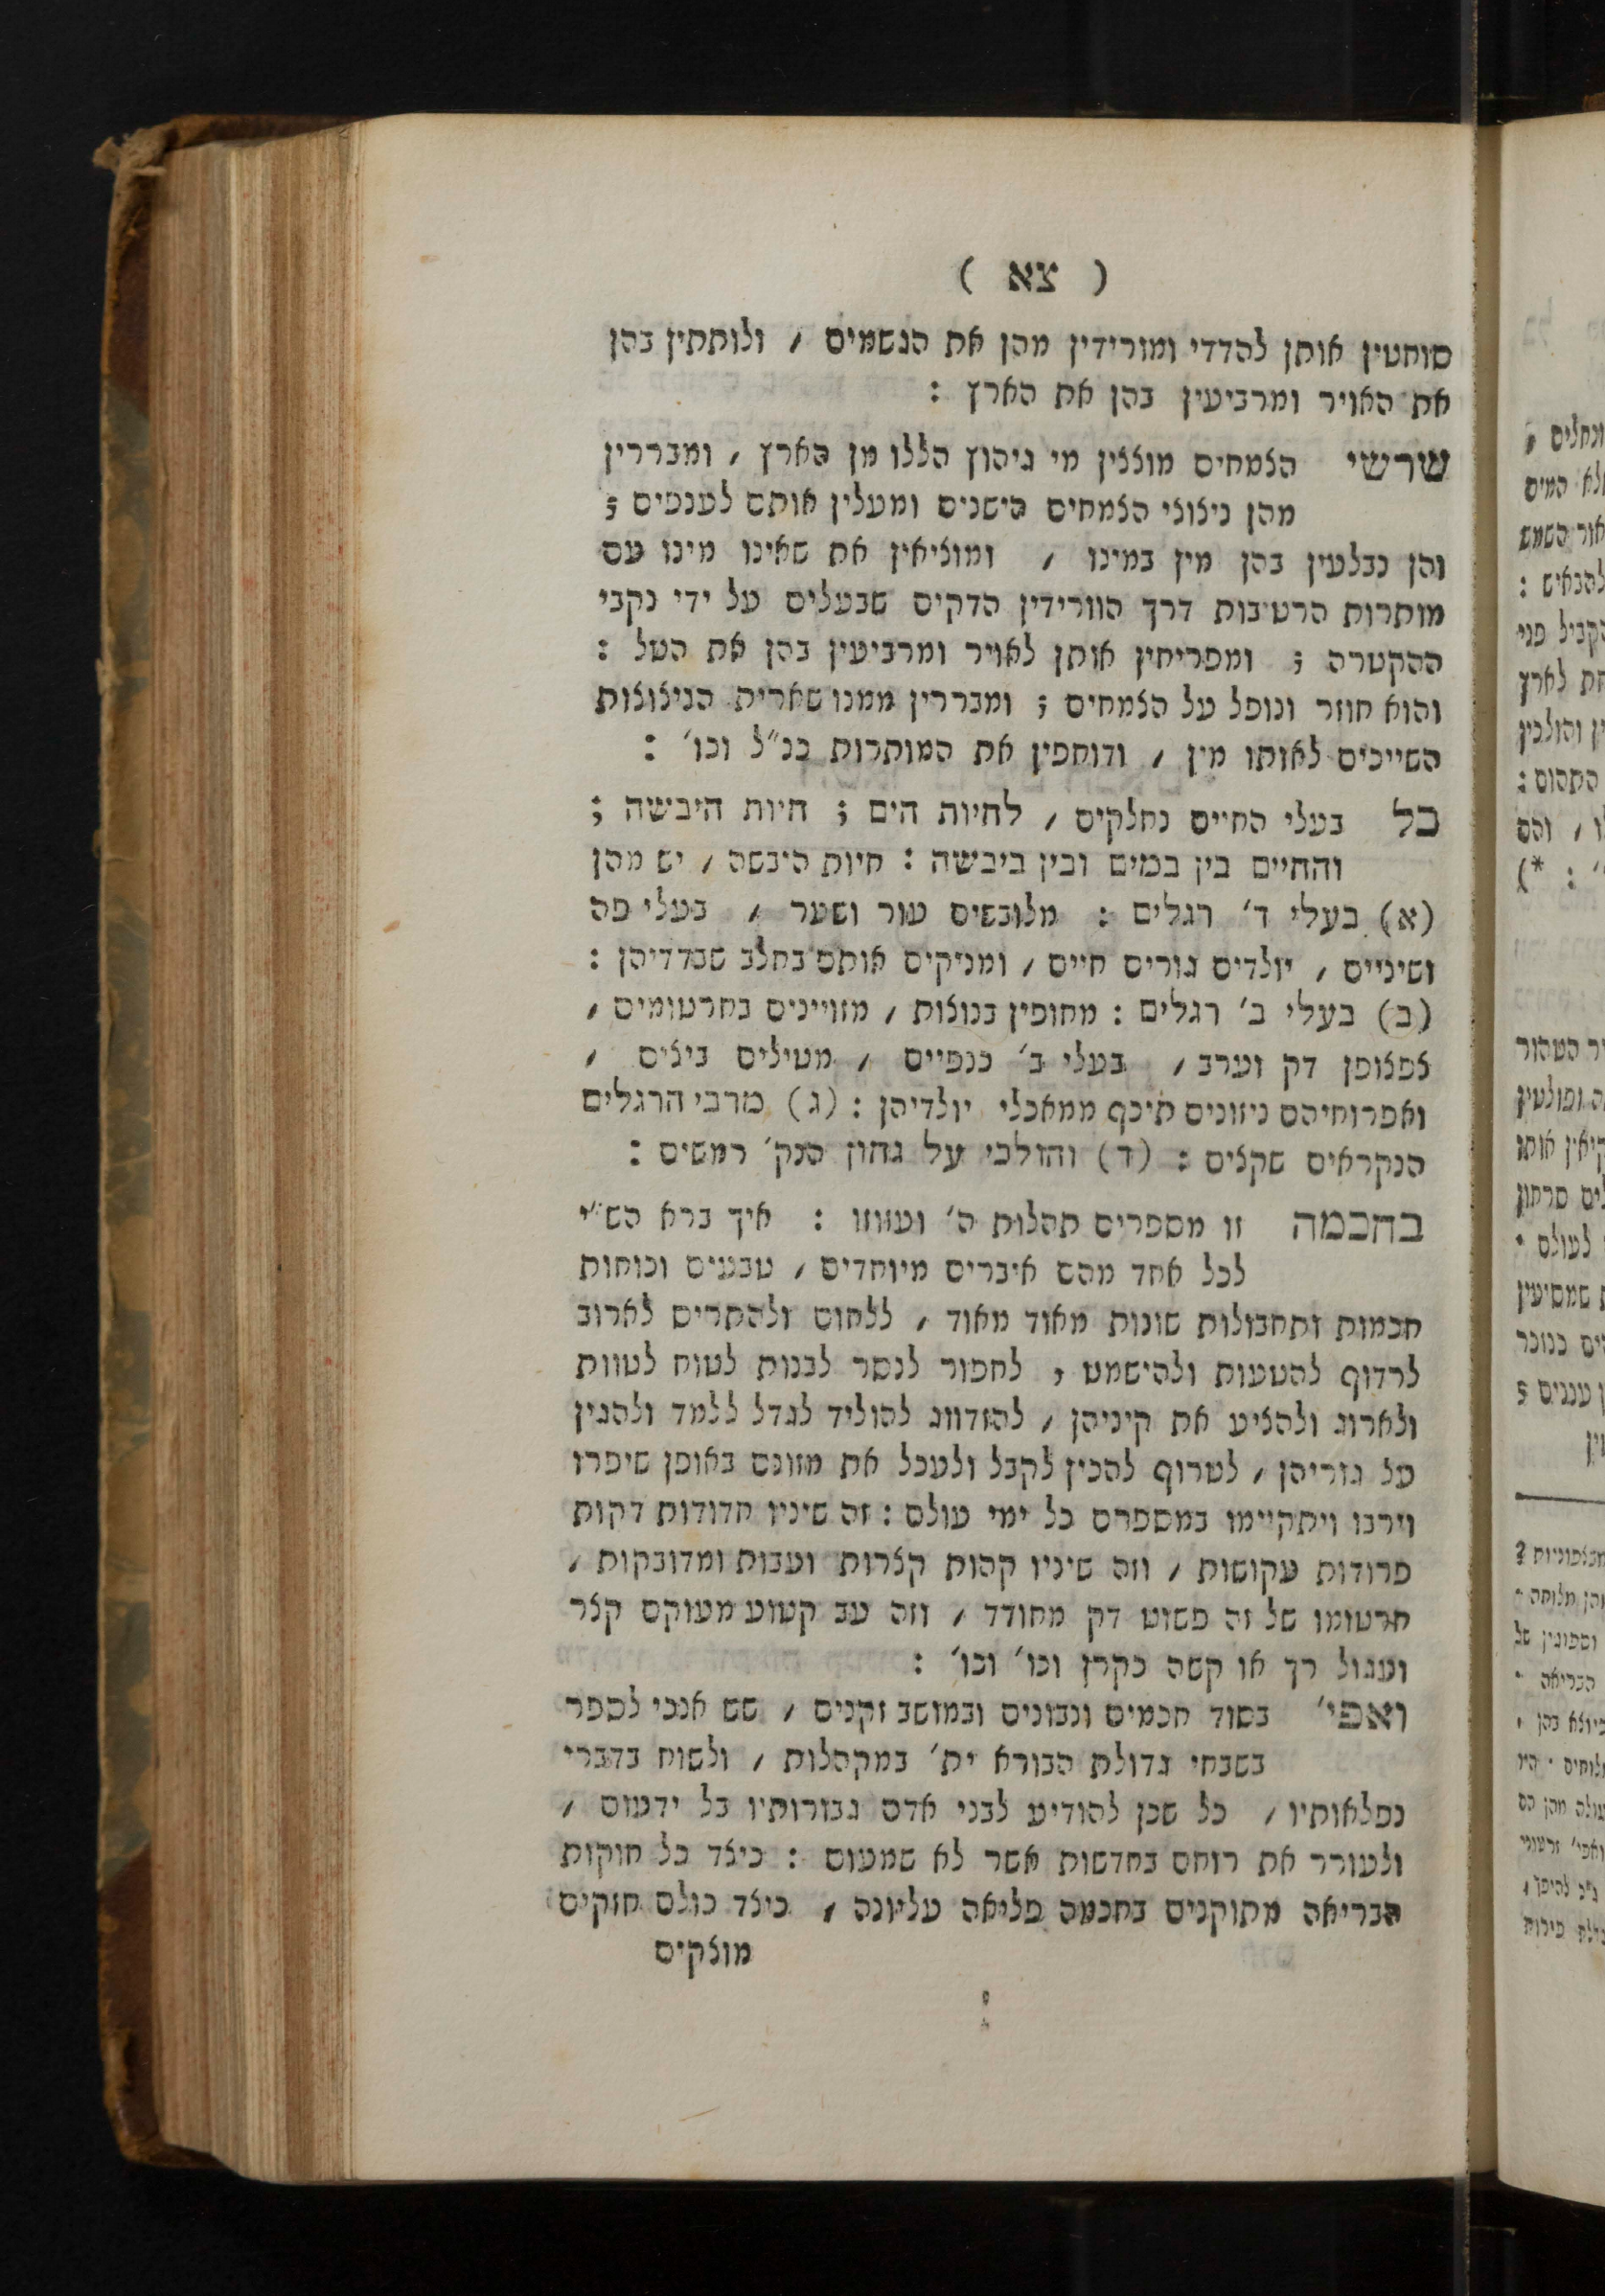 ( צא )
סוחטין אותן להדדי ומורידין מהן את הגשמים / ולותתין בהן
את האויר ומרביעין בהן את הארץ :
שרשי הצמחים מוצצין מי גיהוץ הללו מן הארץ / ומבררין
מהן ניצוצי הצמחים הישנים ומעלין אותם לענפים ;
והן נבלעין בהן מין במינו / ומוציאין את שאינו מינו עם
מותרות הרטיבות דרך הוורידין הדקים שבעלים על ידי נקבי
ההקטרה ; ומפריחין אותן לאויר ומרביעין בהן את הטל :
והוא חוזר ונופל על הצמחים ; ומבררין ממנו שארית הניצוצות
השייכים לאותו מין / ודוחפין את המותרות כנ״ל וכו׳ :
כל בעלי החיים נחלקים / לחיות הים ; חיות היבשה ;
והחיים בין במים ובין ביבשה : חיות היבשה / יש מהן
(א) בעלי ד׳ רגלים : מלובשים עור ושער / בעלי פה
ושיניים / יולדים גורים חיים / ומניקים אותם בחלב שבדדיהן :
(ב) בעלי ב׳ רגלים : מחופין בנוצות / מזויינים בחרטומים /
צפצופן דק וערב / בעלי ב׳ כנפיים / מטילים ביצים /
ואפרוחיהם ניזונים תיכף ממאכלי יולדיהן : (ג) מרבי הרגלים
הנקראים שקצים : (ד) והולכי על גחון הנק׳ רמשים :
בחכמה זו מספרים תהלות ה׳ ועזוזו : איך ברא הש״י
לכל אחד מהם איברים מיוחדים / טבעים וכוחות
חכמות ותחבולות שונות מאוד מאוד / ללחום ולהתרים לארוב
לרדוף להטעות ולהישמט , לחפור לנסר לבנות לטוח לטוות
ולארוג ולהציע את קיניהן / להזדווג להוליד לגדל ללמד ולהגין
על גוריהן / לטרוף להכין לקבל ולעכל את מזונם באופן שיפרו
וירבו ויתקיימו במספרם כל ימי עולם : זה שיניו חדודות דקות
פרודות עקושות / וזה שיניו קהות קצרות ועבות ומדובקות /
חרטומו של זה פשוט דק מחודד / וזה עב קטוע מעוקם קצר
ועגול רך או קשה כקרן וכו׳ וכו׳ :
ואפי׳ בסוד חכמים ונבונים ובמושב זקנים / שש אנכי לספר
בשבחי גדולת הבורא ית׳ במקהלות / ולשוח בדברי
נפלאותיו / כל שכן להודיע לבני אדם גבורותיו בל ידעום /
ולעורר את רוחם בחדשות אשר לא שמעום : כיצד כל חוקות
הבריאה מתוקנים בחכמה פליאה עליונה / כיצד כולם חזקים
מוצקים